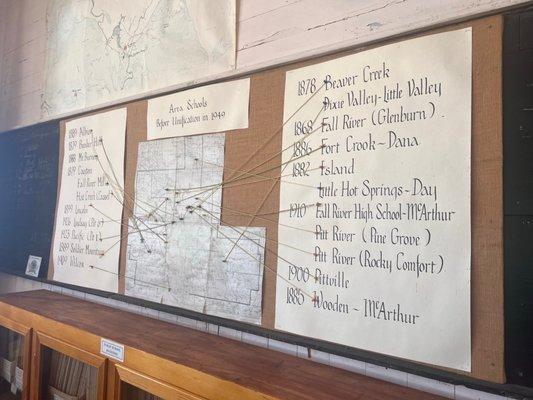 Area Schools
Before Unification in 1949
1889 Albion
1879 Bunker Hill
1888 McBurney
1879 Cayton
Fall River Mills
Hat Creek
1899 Lincoln
Lindsay
1923 Pacific
1899 Soldier Mountain
1909 Wilcox
1878 Beaver Creek
Dixie Valley-Little Valley
1868 Fall River (Glenburn)
1886 Fort Crook-Dana
1882 Island
Little Hot Springs-Day
1910 Fall River High School-McArthur
Pitt River (Pine Grove)
Pitt River (Rocky Comfort)
1900 Pittville
1885 Wooden - McArthur